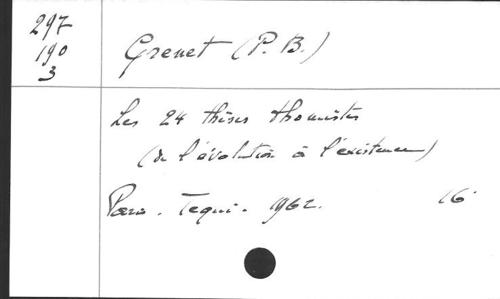 297
190
3
Grenet (P. B.)
Les 24 thèses thomistes
(de l'évolution à l'existence)
Paris. Tequi. 1962. 16°